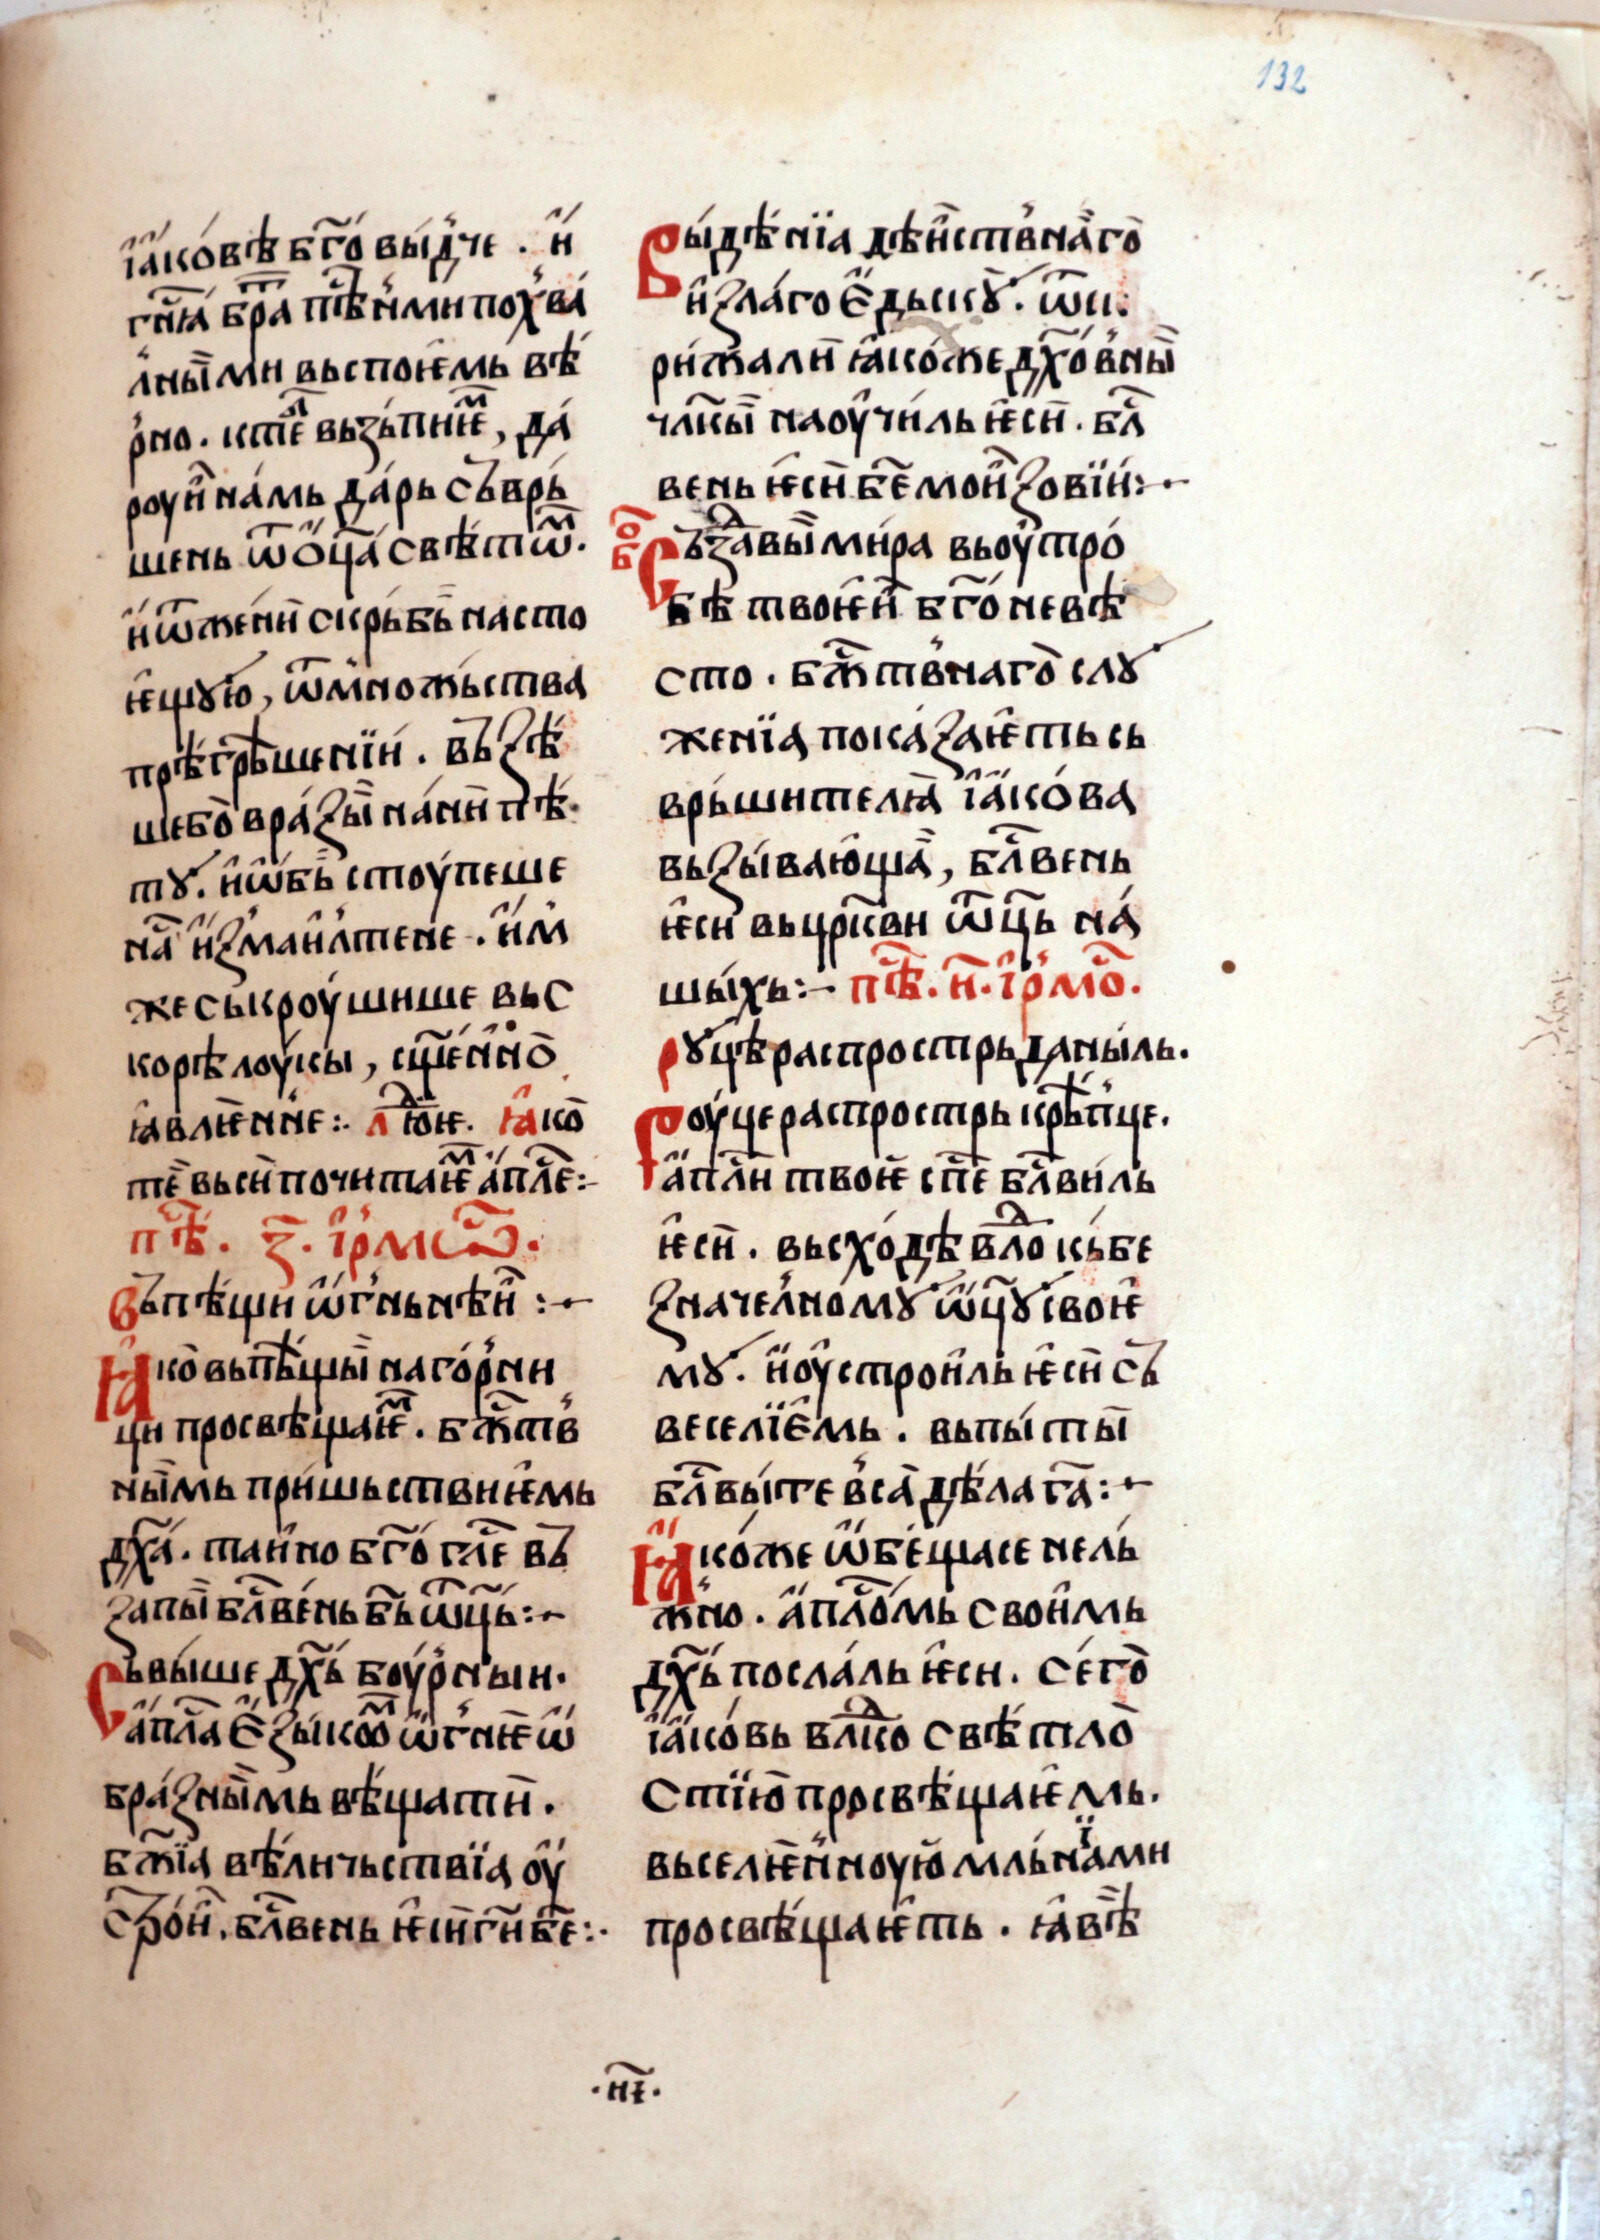 132
і҆а҆ко́вѣ бг҃о́ вы́д̾че . и҆́
гн҃ꙗ́ бра҃т пѣⷭ҇н̾ми похва́
л̾ны̏ми вьспоѥ҆мь́ вѣ́
р̾но . кть҃е вьзь́пиѥⷨ҇ , да́
роуи҆̀ на́мь да́рь съврь́
шень ѿ ѻ҆ц҃а́ свѣ́тѡⷨ҇.
и҆́ ѿжени̏ скрь́бь̏ насто
ѥ҆щꙋю̀ , ѿ мно́жьства
прѣ́грѣ́шенїи́ . въꙁѣ́
ше бо̀ вра́ꙁы̏ на́ни̏ пѣ́
тꙋ̀. и҆ ѡ҆́бь̏ стоу́пеше
на҃ и҆́ꙁ̾маи҆л̾тене . и҆́м̾
же ськроу́шише вьс
корѣ лоу́кы , сщ҃е́н̾но̀
ꙗ҆влѥ́н̾не :· лⷣ ю҃ѥ. ꙗ҆ко̀
те̏ вьси̏ почитаѥⷨ҇ а҆́пⷭ҇ле :-
пѣⷭ҇. ꙁ҃. і҆р̾мѡⷭ҇.
Въ пѣ́щи ѡ҆́г̾ньнѣи҆̀ :⁓
Ꙗ҆́ко̀ вь пѣ́щы̏ на го́р̾ни
ци просвѣ́щаѥⷨ҇ . бжⷭ҇тв̾
ны̏мь при́шьствиѥ҆мь
дх҃а́ . таи҆но бг҃о́ гл҃е въ
ꙁапы̏ блⷭ҇ве́нь бь҃ ѿц҃ь́ :⁓
Сь вы́ше дх҃ь́ боу́р̾ныи .
а҆́пⷭ҇ла є҆́ꙁы́коⷨ҇ ѡ҆́г̾нѥ ѡ҆́
бра́ꙁны̏мь вѣ́щати̏ .
бж҃їа вѣ́личьствїа оу҆́
строи҆̀ . блⷭ҇вень ѥ҆си̏ гн҃ бе҃ :·
Вы́дѣ́нїа дѣи҆̀ств̾на̏го̀
и҆́ꙁла́го є҆́дьскꙋ̀. ѿи:
ри́жали̏ ꙗ҆ко́же дх҃о́в̾ны̏
чл҃кы̏ наоу҆чи́ль ѥ҆си̏ . блⷭ҇
вень ѥ҆си̏ бе҃ мои҆̀ ꙁовїи́ :⁓
бо҃ Съꙁⷣавы̏ ми́ра вь оу҆тро́
бѣ твоѥ҆и҆̀ бг҃о́невѣ
сто . бжⷭ҇тв̾наго̀ слꙋ
женїа пока́ꙁаѥ҆ть сь
врь́шителꙗ̏ і҆а҆ко́ва
вьꙁы́ваю҆ща̏ , блⷭ҇вень
ѥ҆си вь црⷦ҇ви ѿц҃ь на́
шы́хь :⁓ пѣⷭ҇. и҃. і҆р̾моⷭ҇.
рꙋцѣ распрострь даны́ль.
Роу́це распрострь крѣ́п̾це.
а҆́пⷭ҇ли твоѥ҆ сп҃е блⷭ҇ви́ль
ѥ҆си̏ . высхо́дѣ влⷣо кь́ бе
ꙁначел̾номꙋ̀ ѡ҆́ц҃ꙋ̀ своѥ҆
мꙋ̀. и҆́ оу҆строи҆ль ѥ҆си̏ съ
веселїє҆мь . вьпы́ ты̏
блⷭ҇вы́те в̾са̀ дѣ́ла га҃ :⁓
Ꙗ҆́ко́же ѡ҆́бе́щасе нель́
ж̾но . а҆́пⷭ҇ло́мь свои҆мь
дх҃ь́ послаль ѥ҆си . се́го̀
і҆а҆ко́вь влⷣко свѣ́тло̀
стїю̀ просвѣ́щаѥ҆мь.
вьселѥ́н̾ноую̀ мль́нїа̏ми
просвѣ́щаѥ҆ть . ꙗ҆в̾ѣ
·нꙁ҃·